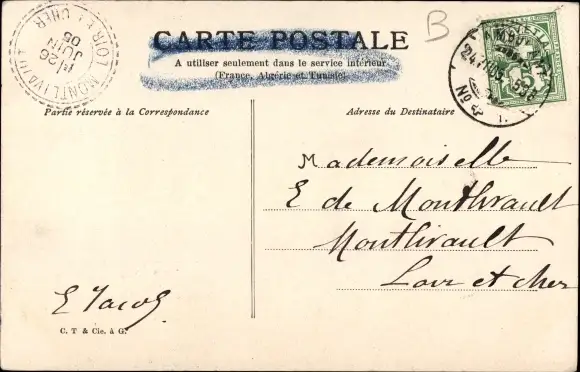 CARTE POSTALE
B
A utiliser seulement dans le service intérieur
(France, Algérie et Tunisie)
MONTLIVAULT LOIR ET CHER
26
JUIN
05
Partie réservée à la Correspondance
Adresse du Destinataire
Mademoiselle
E de Montlivault
Montlivault
Loir et cher
E Jacob
C. T & Cie. à G.